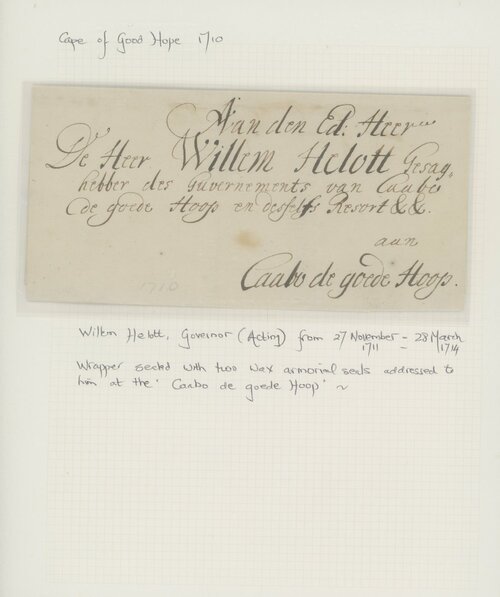 Cape of Good Hope 1710
Aan den Ed: Heer
De Heer Willem Helott Gesag,
hebber des Guvernements van Caabo
de goede Hoop en desselfs Resort &&.
aan
Caabo de goede Hoop.
1710
Willem Helott, Governor (Acting) from 27 November - 28 March
1711 1714
Wrapper sealed with two wax armorial seals addressed to
him at the 'Caabo de goede Hoop' ~